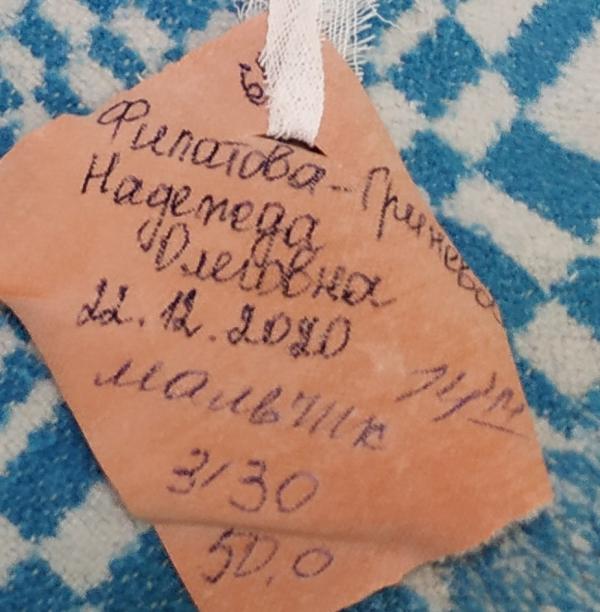 Филатова-Гринева
Надежда
Олеговна
22.12.2020
мальчик
3130
50,0